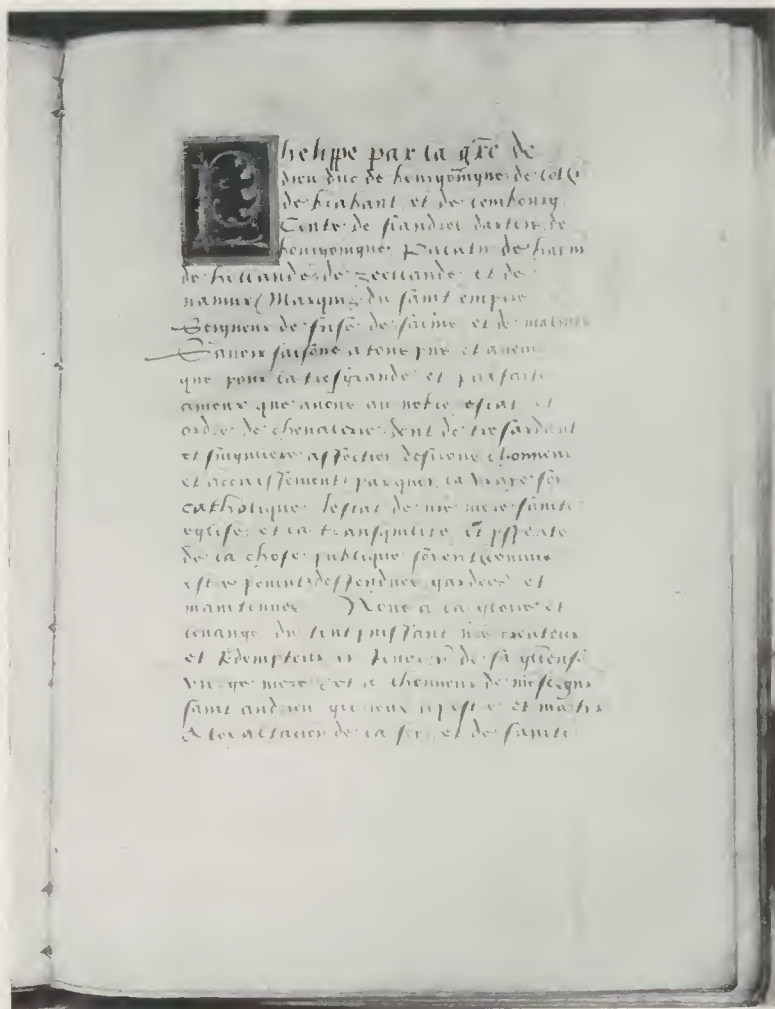 Phelippe par la grē de
dieu duc de bourgoingne de
de brabant et de lembourg
Conte de flandres dartois de
bourgoingne Palatin de
de hollande de zeellande et de
namur Marquis du saint empire
Seigneur de frise de salins et de malines
Sauoir faisons a tous pns et auenir
que pour la tresgrande et parfaite
amour que auons au noble estat et
ordre de cheualerie dont de tresardant
et singuliere affection desirons lhonneur
et accroissement par quoy la vraye foy
catholique lestat de nre mere sainte
eglise et la transquilite et
de la chose publique soient comme
estre peuuent deffendues gardees et
maintenues Nous a la gloire et
louange du tout puissant nre createur
et Redempteur en reuerence de sa glorieuse
vierge mere et a lhonneur de monseigneur
saint andrieu glorieux apostre et martir
A lexaltacion de la foy et de sainte